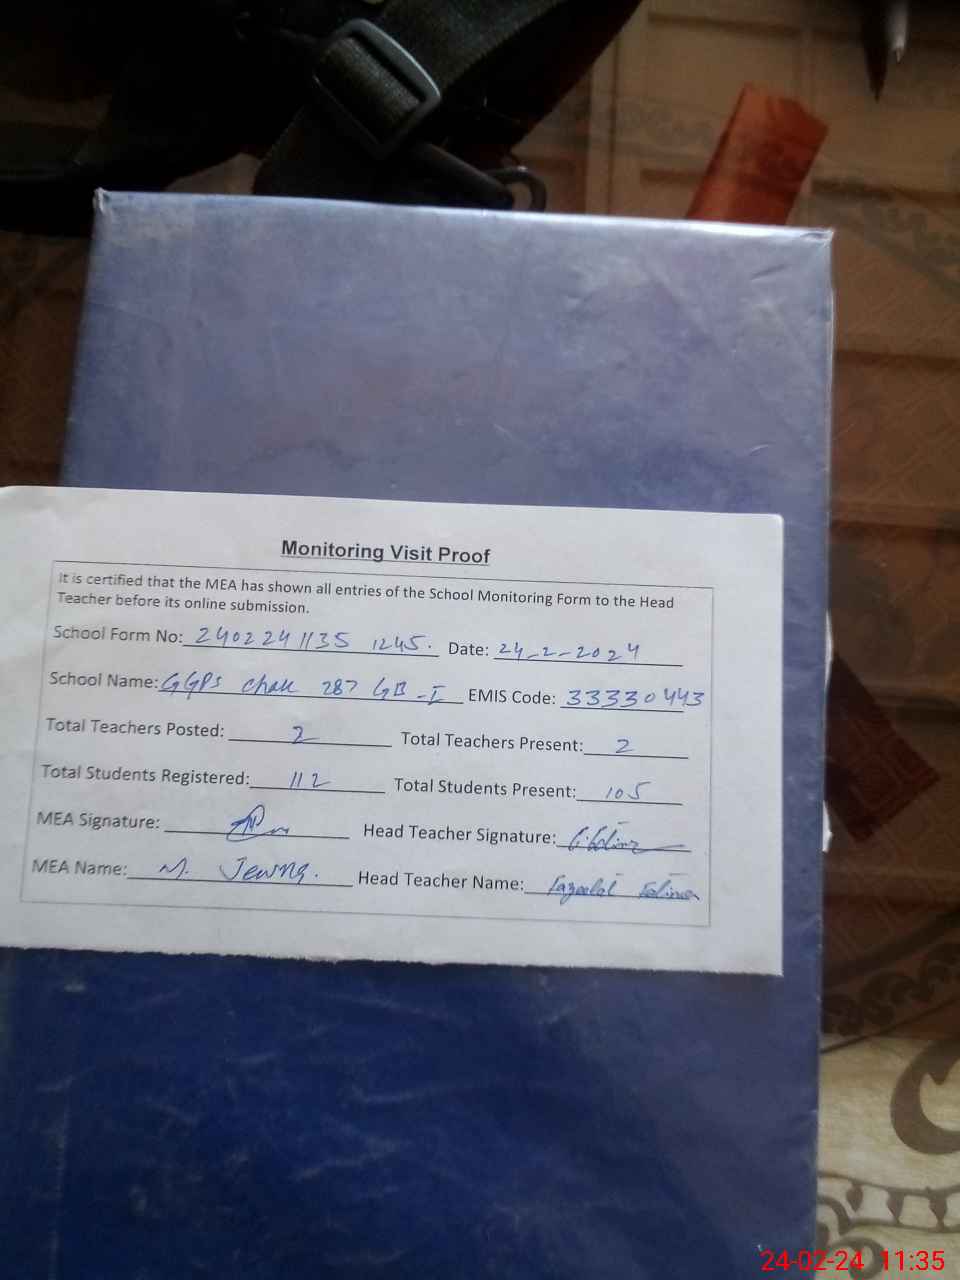 Monitoring Visit Proof
It is certified that the MEA has shown all entries of the School Monitoring Form to the Head
Teacher before its online submission.
School Form No: 2402241135 1245. Date: 24-2-2024
School Name: GGPS Chak 287 GB-I EMIS Code: 33330443
Total Teachers Posted: 2 Total Teachers Present: 2
Total Students Registered: 112 Total Students Present: 105
MEA Signature: Head Teacher Signature:
MEA Name: M. Head Teacher Name: Fatima
24-02-24 11:35